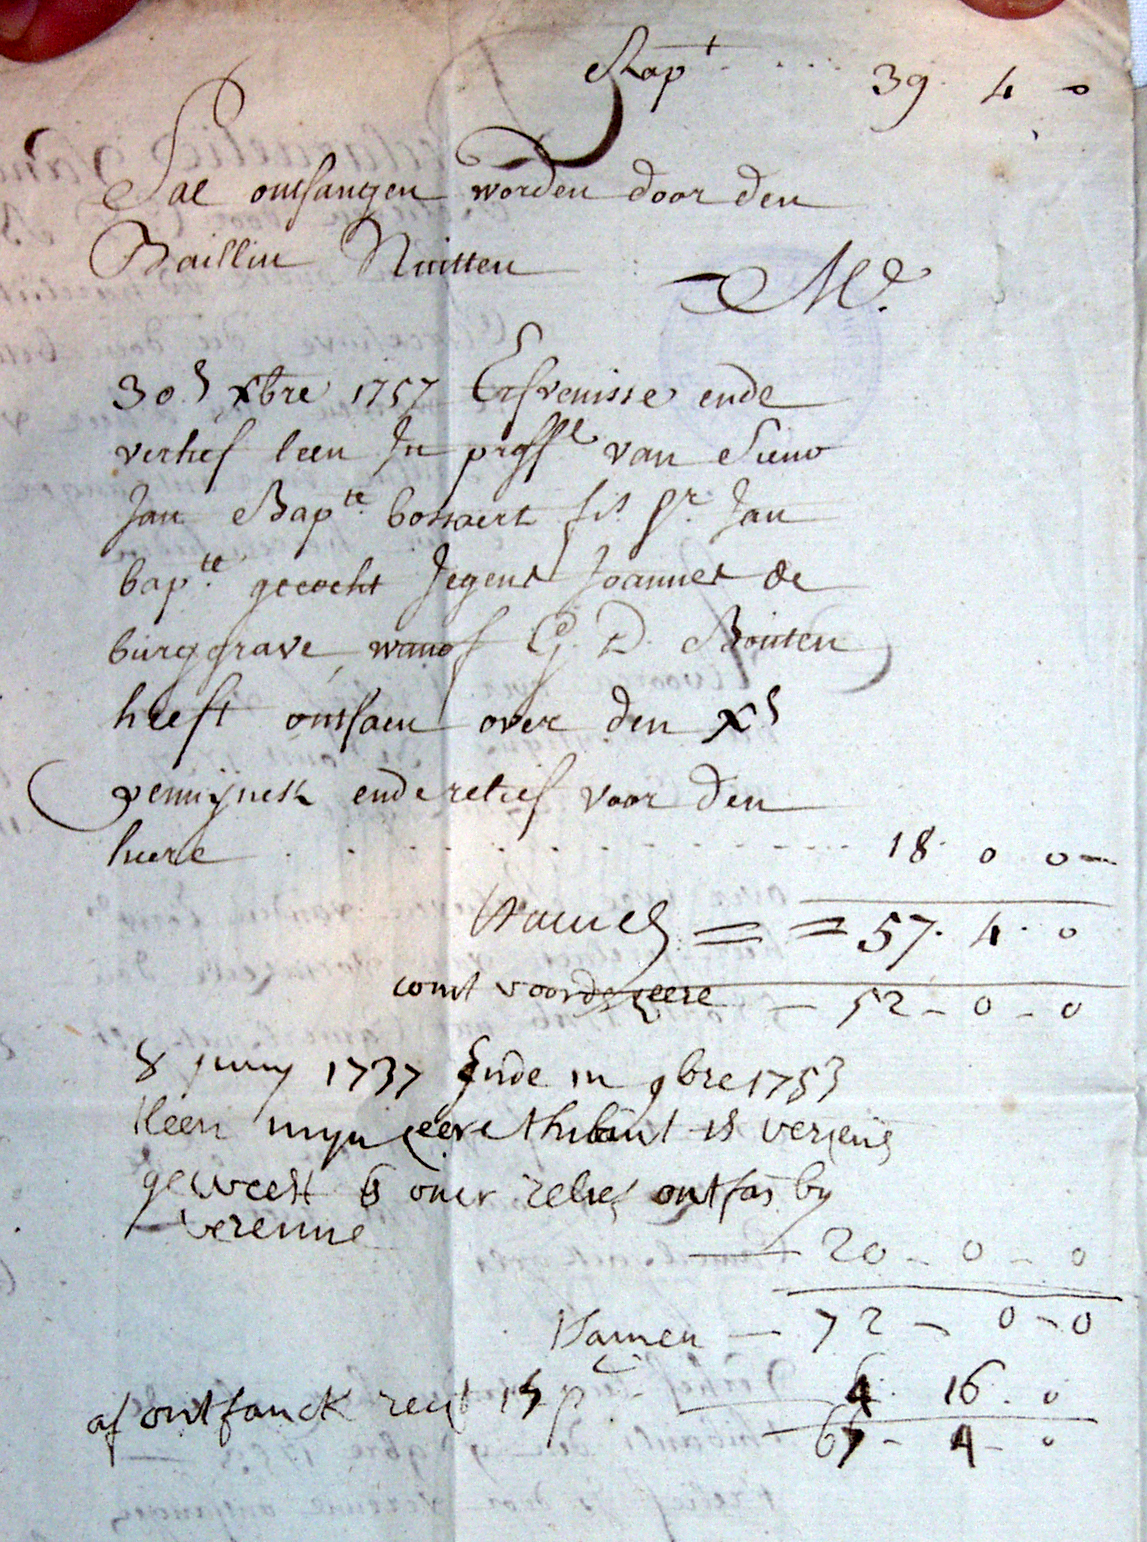 Rapt. . . . . 39. 4 0
Sal ontfangen worden door den
Bailliu Nuitten
Me.
30s xbre 1757 Erfvenisse ende
verlief leen In proffe van Sieur
Jan Bapte. bossaert fs. Sr. Jan
bapte. gecocht Jegens Joannes de
burggrave, wanof G. D. Bouten
heeft ontfaen over den xs
pennijnck ende relief voor den
heere . . . . . . . . . . 18. 0 0
tSamen = = 57. 4. 0
comt voor den heere — 52 – 0 – 0
8 juny 1737 Ende in 9bre 1753
alleen mijn heere thibaut is
geweest is over relief ontfaen by
verenne
— 20 – 0 – 0
tSamen — 72 – 0 – 0
af ontfanck recht 15 p
4. 16. 0
67 – 4 – 0